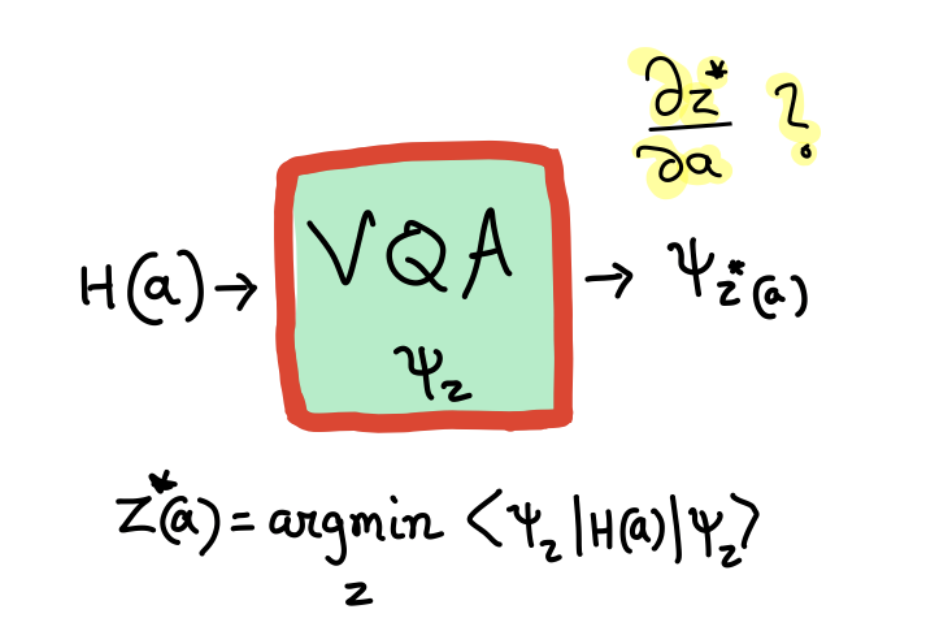 ∂z*/∂a ?
H(a) → VQA → ψ_z*(a)
ψ_z
z*(a) = argmin_z <ψ_z|H(a)|ψ_z>